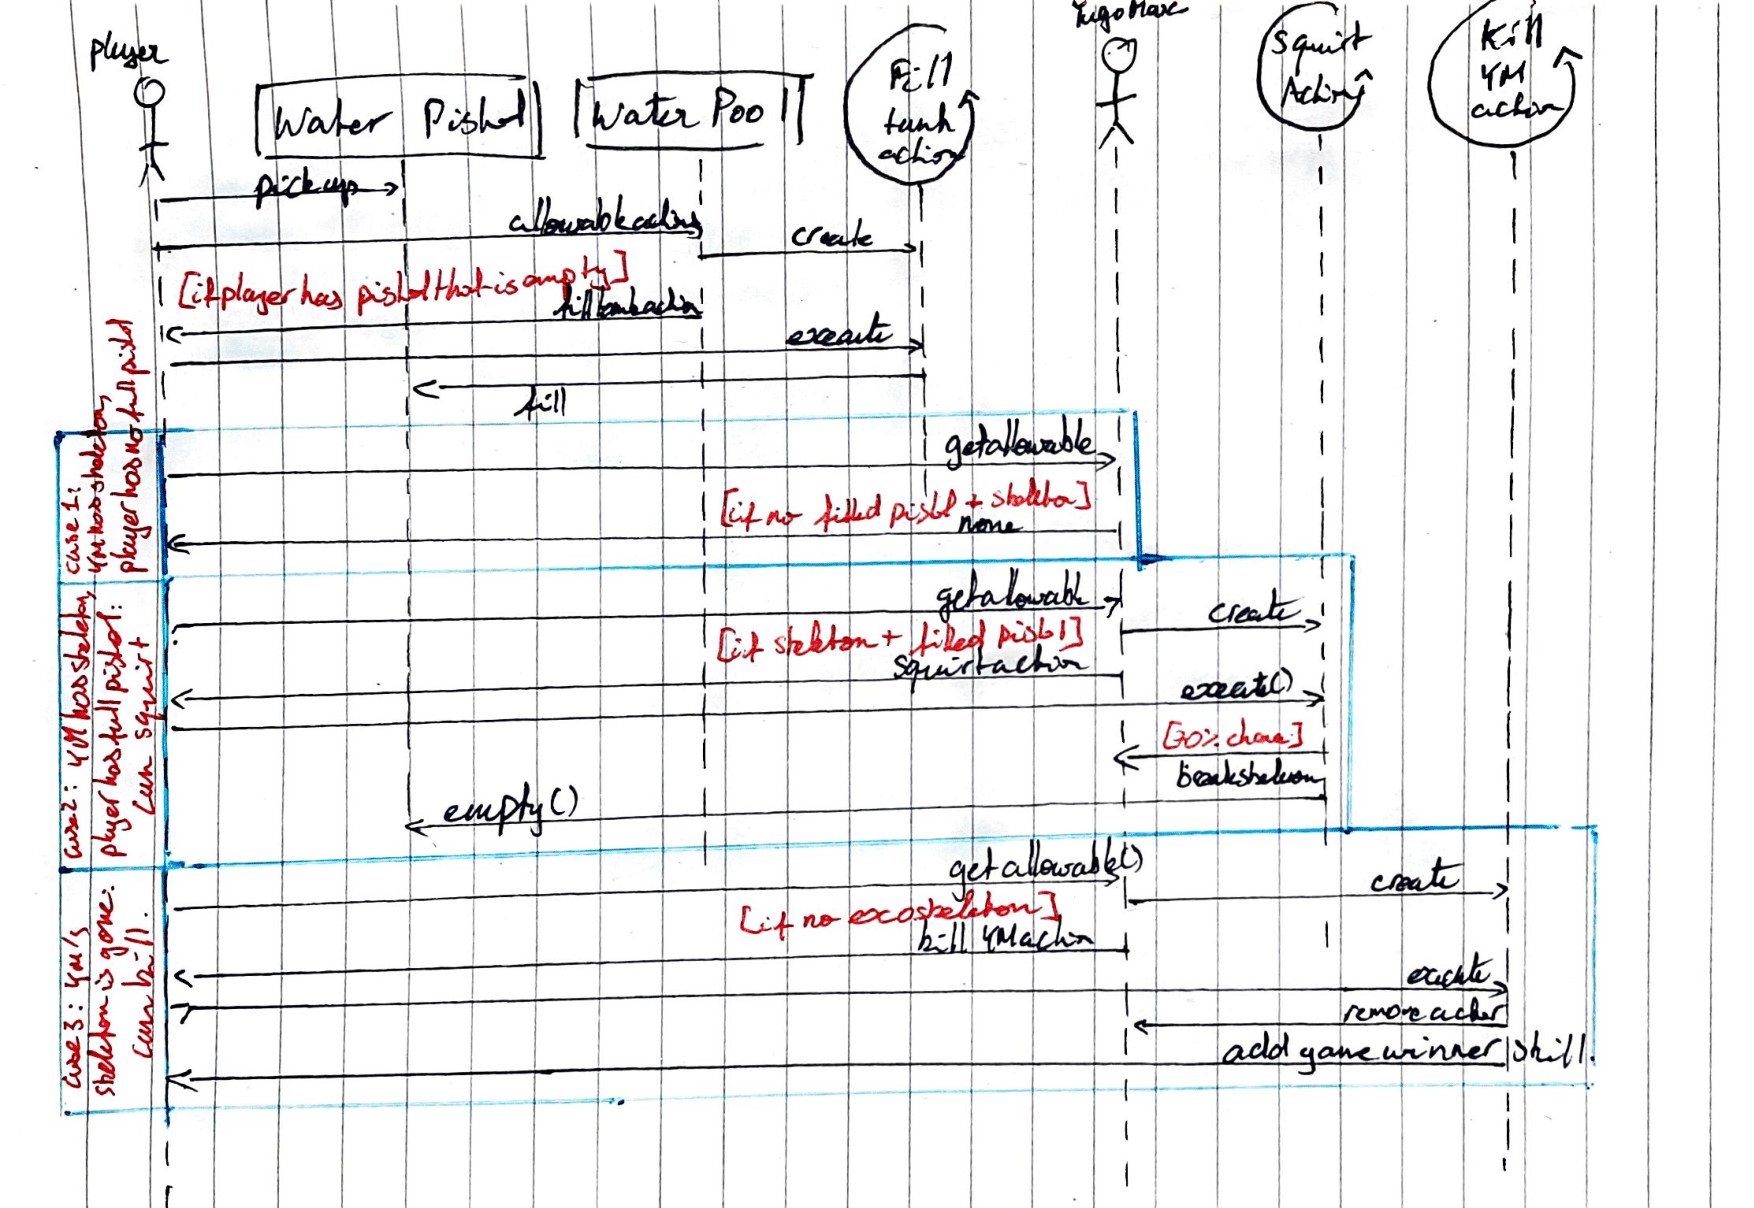 player
Water Pistol
Water Pool
Fill
tank
action
YugoMaxx
Squirt
Action
Kill
YM
action
pickup
allowableactions
create
[if player has pistol that is empty]
filltankaction
execute
fill
case 1:
YM has skeleton,
player has no full pistol
getallowable
[if no filled pistol + skeleton]
none
case 2: YM has skeleton,
player has full pistol:
can squirt
getallowable
create
[if skeleton + filled pistol]
squirtaction
execute()
[70% chance]
breakskeleton
empty()
case 3: YM's
skeleton is gone.
can kill.
getallowable()
create
[if no exoskeleton]
kill YMaction
execute
remove actor
add game winner skill